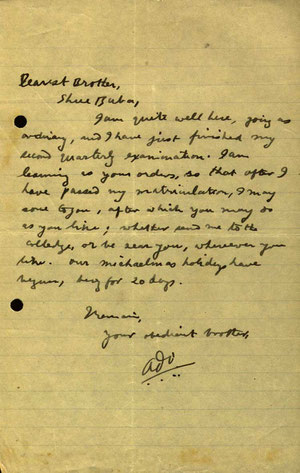 Dearest Brother,
Shree Baba,
I am quite well here, going as
ordinary, and I have just finished my
second quarterly examination. I am
learning as your orders, so that after I
have passed my matriculation, I may
come to you, after which you may do
as you like; whether send me to the
colledge, or be near you, wherever you
like. Our michaelmas holidays have
begun, being for 20 days.
I remain,
your obedient brother,
Adi